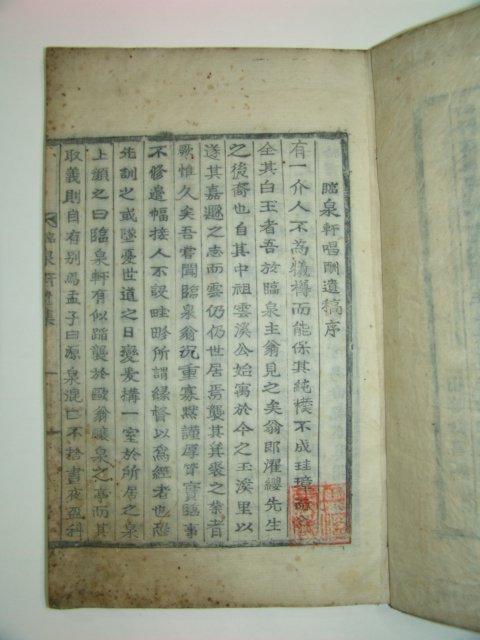 臨泉軒唱酬遺稿序
有一介人不為犧樽而能保其純樸不成珪璋而能
全其白玉者吾於臨泉主翁見之矣翁即濯纓先生
之後裔也自其中祖雲溪公始寓於今之玉溪里以
遂其嘉遯之志而雲仍仍世居焉襲其箕裘之業者
厥惟久矣吾嘗聞臨泉翁沉重寡默謹厚
不修邊幅接人不設畦畛所謂緣督以為經者也
先訓之或墜憂世道之日變爰搆一室於所居之泉
上額之曰臨泉軒有似蹈襲於歐翁釀泉之亭而其
取義則自有別焉孟子曰源泉混亡不舍晝夜盈科
臨泉軒遺集